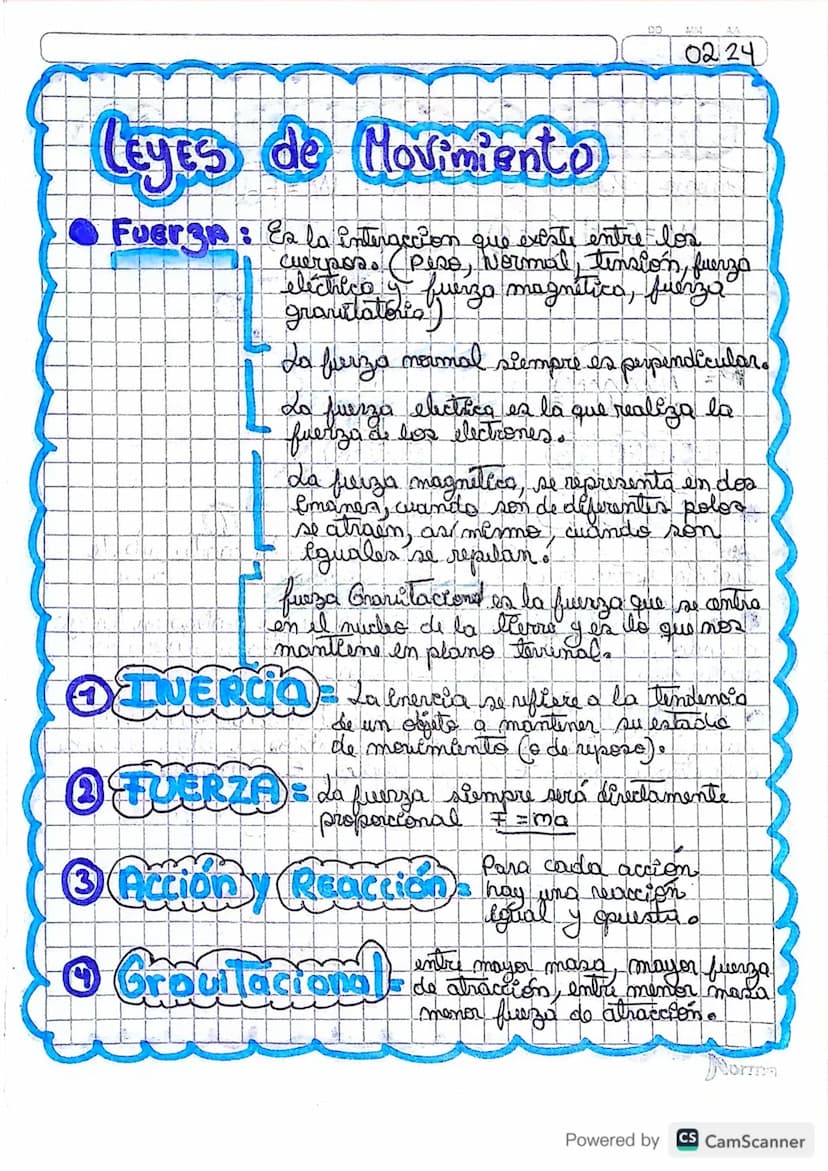 DD MM AA
02 24
Leyes de Movimiento
Fuerza: Es la interaccion que existe entre los
cuerpos. (Peso, Normal, tensión, fuerza
eléctrica y fuerza magnética, fuerza
gravitatoria.)
La fuerza normal siempre es perpendicular.
La fuerza electrica es la que realiza la
fuerza de los electrones.
La fuerza magnética, se representa en dos
imanes, cuando son de diferentes polos
se atraen, así mismo, cuando son
iguales se repelan.
fuerza Gravitacional es la fuerza que se centra
en el nucleo de la tierra y es lo que nos
mantiene en plano terrinal.
1 INERCia = La inercia se refiere a la tendencia
de un objeto a mantener su estado
de movimiento (o de reposo).
2 FUERZA = La fuerza siempre será directamente
proporcional F = ma
3 Acción y Reacción = Para cada acción
hay una reacción
igual y opuesta.
4 Gravitacional = entre mayor masa, mayor fuerza
de atracción, entre menor masa
menor fuerza de atracción.
Norma
Powered by CS CamScanner